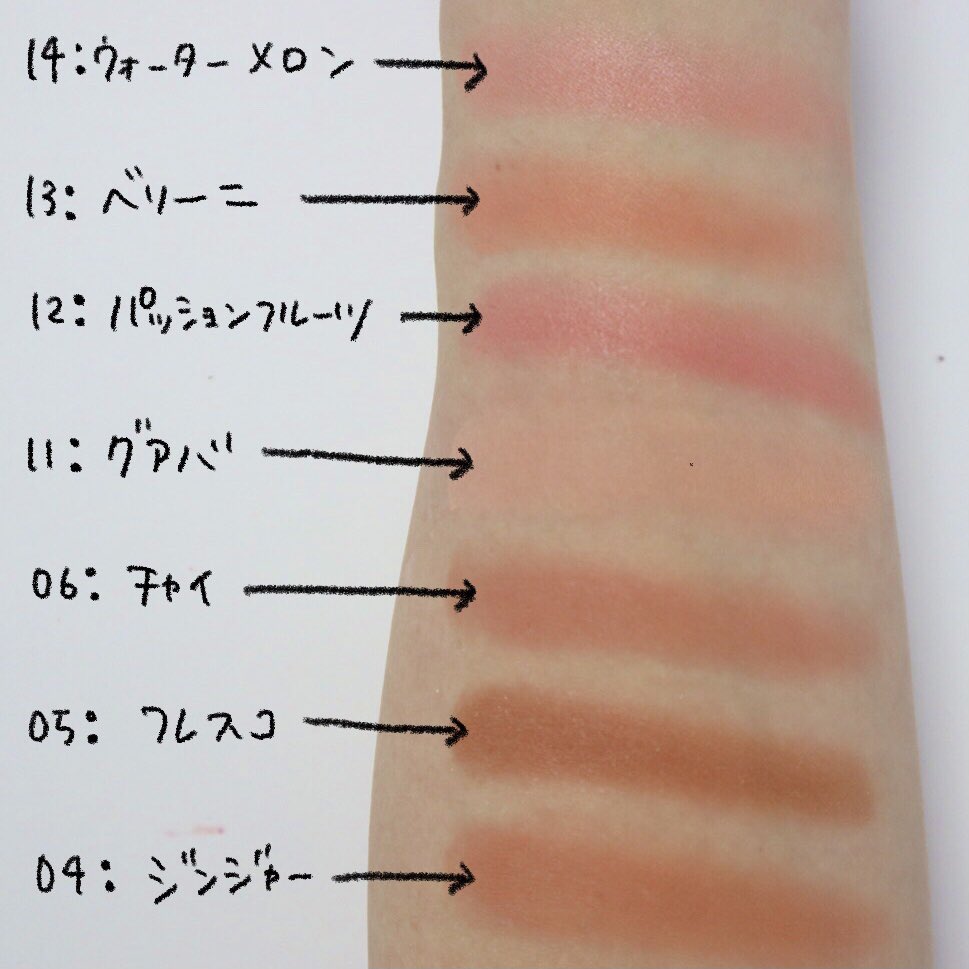 14:ウォーターメロン
13: ベリーニ
12: パッションフルーツ
11: グアバ
06: チャイ
05: フレスコ
04: ジンジャー